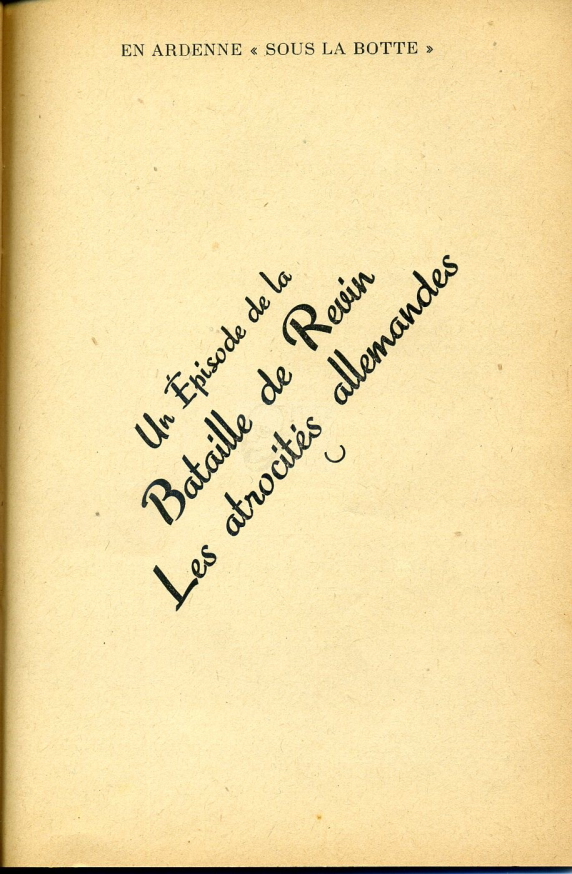 EN ARDENNE « SOUS LA BOTTE »
Un Épisode de la
Bataille de Revin
Les atrocités allemandes